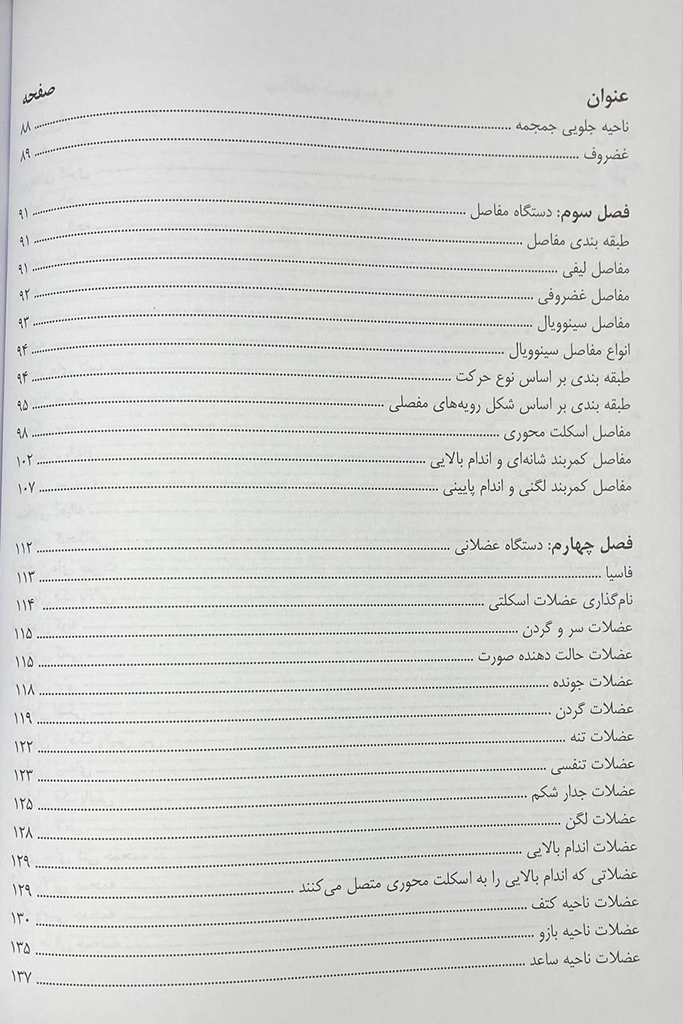 عنوان صفحه
ناحیه جلویی جمجمه ........ ۸۸
غضروف ........ ۸۹
فصل سوم: دستگاه مفاصل ........ ۹۱
طبقه بندی مفاصل ........ ۹۱
مفاصل لیفی ........ ۹۱
مفاصل غضروفی ........ ۹۲
مفاصل سینوویال ........ ۹۳
انواع مفاصل سینوویال ........ ۹۴
طبقه بندی بر اساس نوع حرکت ........ ۹۴
طبقه بندی بر اساس شکل رویه‌های مفصلی ........ ۹۵
مفاصل اسکلت محوری ........ ۹۸
مفاصل کمربند شانه‌ای و اندام بالایی ........ ۱۰۲
مفاصل کمربند لگنی و اندام پایینی ........ ۱۰۷
فصل چهارم: دستگاه عضلانی ........ ۱۱۲
فاسیا ........ ۱۱۳
نام‌گذاری عضلات اسکلتی ........ ۱۱۴
عضلات سر و گردن ........ ۱۱۵
عضلات حالت دهنده صورت ........ ۱۱۵
عضلات جونده ........ ۱۱۸
عضلات گردن ........ ۱۱۹
عضلات تنه ........ ۱۲۲
عضلات تنفسی ........ ۱۲۳
عضلات جدار شکم ........ ۱۲۵
عضلات لگن ........ ۱۲۸
عضلات اندام بالایی ........ ۱۲۹
عضلاتی که اندام بالایی را به اسکلت محوری متصل می‌کنند ........ ۱۲۹
عضلات ناحیه کتف ........ ۱۳۰
عضلات ناحیه بازو ........ ۱۳۵
عضلات ناحیه ساعد ........ ۱۳۷